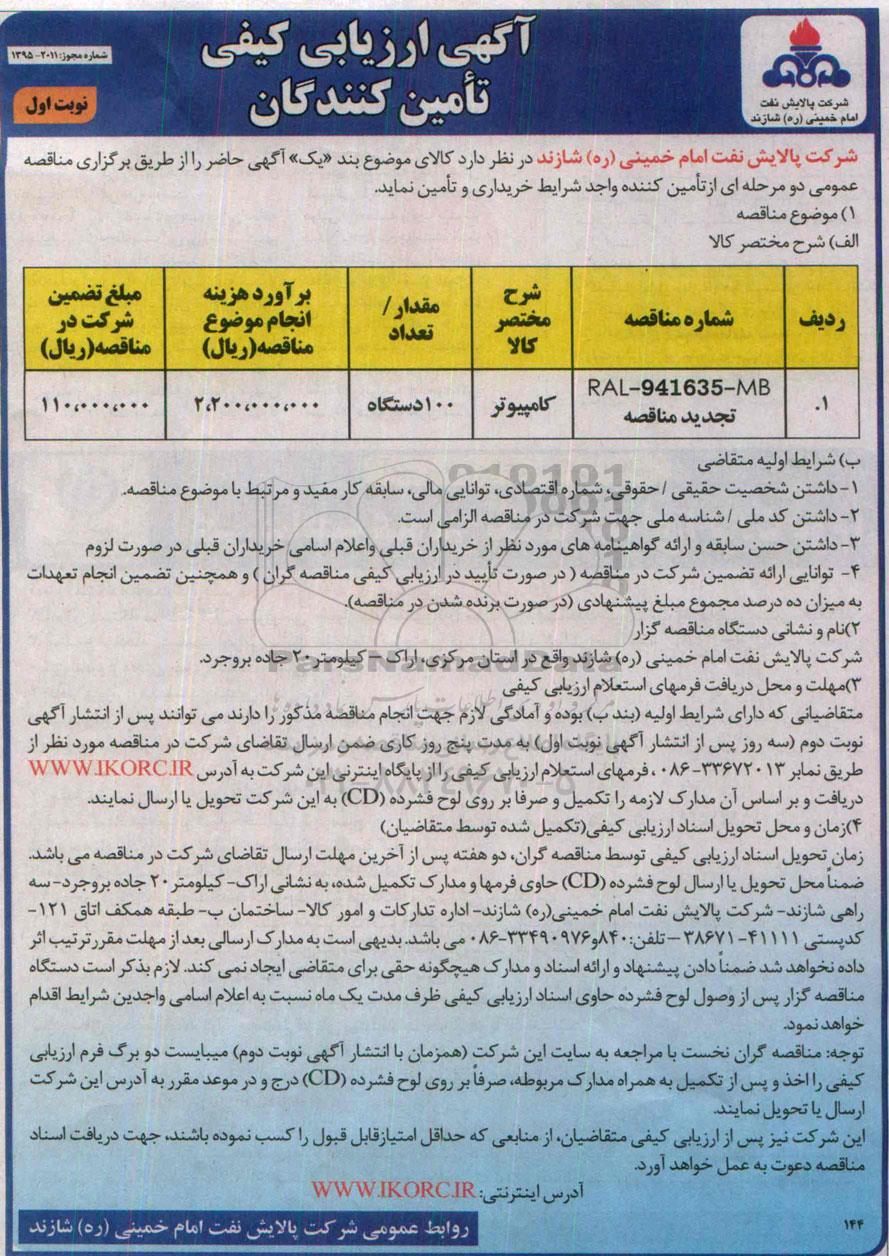 آگهی ارزیابی کیفی
تأمین کنندگان
شماره مجوز: ۲۰۱۱-۱۳۹۵
نوبت اول
شرکت پالایش نفت
امام خمینی (ره) شازند
شرکت پالایش نفت امام خمینی (ره) شازند در نظر دارد کالای موضوع بند «یک» آگهی حاضر را از طریق برگزاری مناقصه
عمومی دو مرحله ای ازتأمین کننده واجد شرایط خریداری و تأمین نماید.
۱) موضوع مناقصه
الف) شرح مختصر کالا
ردیف | شماره مناقصه | شرح مختصر کالا | مقدار/ تعداد | برآورد هزینه انجام موضوع مناقصه(ریال) | مبلغ تضمین شرکت در مناقصه(ریال)
۱. | RAL-941635-MB تجدید مناقصه | کامپیوتر | ۱۰۰دستگاه | ۲،۲۰۰،۰۰۰،۰۰۰ | ۱۱۰،۰۰۰،۰۰۰
ب) شرایط اولیه متقاضی
۱-داشتن شخصیت حقیقی / حقوقی، شماره اقتصادی، توانایی مالی، سابقه کار مفید و مرتبط با موضوع مناقصه.
۲-داشتن کد ملی / شناسه ملی جهت شرکت در مناقصه الزامی است.
۳-داشتن حسن سابقه و ارائه گواهینامه های مورد نظر از خریداران قبلی واعلام اسامی خریداران قبلی در صورت لزوم
۴- توانایی ارائه تضمین شرکت در مناقصه ( در صورت تأیید در ارزیابی کیفی مناقصه گران ) و همچنین تضمین انجام تعهدات
به میزان ده درصد مجموع مبلغ پیشنهادی (در صورت برنده شدن در مناقصه).
۲)نام و نشانی دستگاه مناقصه گزار
شرکت پالایش نفت امام خمینی (ره) شازند واقع در استان مرکزی، اراک - کیلومتر ۲۰ جاده بروجرد.
۳)مهلت و محل دریافت فرمهای استعلام ارزیابی کیفی
متقاضیانی که دارای شرایط اولیه (بند ب) بوده و آمادگی لازم جهت انجام مناقصه مذکور را دارند می توانند پس از انتشار آگهی
نوبت دوم (سه روز پس از انتشار آگهی نوبت اول) به مدت پنج روز کاری ضمن ارسال تقاضای شرکت در مناقصه مورد نظر از
طریق نمابر ۳۳۶۷۲۰۱۳-۰۸۶ ، فرمهای استعلام ارزیابی کیفی را از پایگاه اینترنتی این شرکت به آدرس WWW.IKORC.IR
دریافت و بر اساس آن مدارک لازمه را تکمیل و صرفا بر روی لوح فشرده (CD) به این شرکت تحویل یا ارسال نمایند.
۴)زمان و محل تحویل اسناد ارزیابی کیفی(تکمیل شده توسط متقاضیان)
زمان تحویل اسناد ارزیابی کیفی توسط مناقصه گران، دو هفته پس از آخرین مهلت ارسال تقاضای شرکت در مناقصه می باشد.
ضمناً محل تحویل یا ارسال لوح فشرده (CD) حاوی فرمها و مدارک تکمیل شده، به نشانی اراک- کیلومتر ۲۰ جاده بروجرد-سه
راهی شازند- شرکت پالایش نفت امام خمینی(ره) شازند- اداره تدارکات و امور کالا- ساختمان ب- طبقه همکف اتاق ۱۲۱-
کدپستی ۴۱۱۱۱-۳۸۶۷۱ - تلفن:۸۴۰و۳۳۴۹۰۹۷۶-۰۸۶ می باشد. بدیهی است به مدارک ارسالی بعد از مهلت مقررترتیب اثر
داده نخواهد شد ضمناً دادن پیشنهاد و ارائه اسناد و مدارک هیچگونه حقی برای متقاضی ایجاد نمی کند. لازم بذکر است دستگاه
مناقصه گزار پس از وصول لوح فشرده حاوی اسناد ارزیابی کیفی ظرف مدت یک ماه نسبت به اعلام اسامی واجدین شرایط اقدام
خواهد نمود.
توجه: مناقصه گران نخست با مراجعه به سایت این شرکت (همزمان با انتشار آگهی نوبت دوم) میبایست دو برگ فرم ارزیابی
کیفی را اخذ و پس از تکمیل به همراه مدارک مربوطه، صرفاً بر روی لوح فشرده (CD) درج و در موعد مقرر به آدرس این شرکت
ارسال یا تحویل نمایند.
این شرکت نیز پس از ارزیابی کیفی متقاضیان، از منابعی که حداقل امتیازقابل قبول را کسب نموده باشند، جهت دریافت اسناد
مناقصه دعوت به عمل خواهد آورد.
آدرس اینترنتی: WWW.IKORC.IR
روابط عمومی شرکت پالایش نفت امام خمینی (ره) شازند
۱۴۴
ParsNamadData